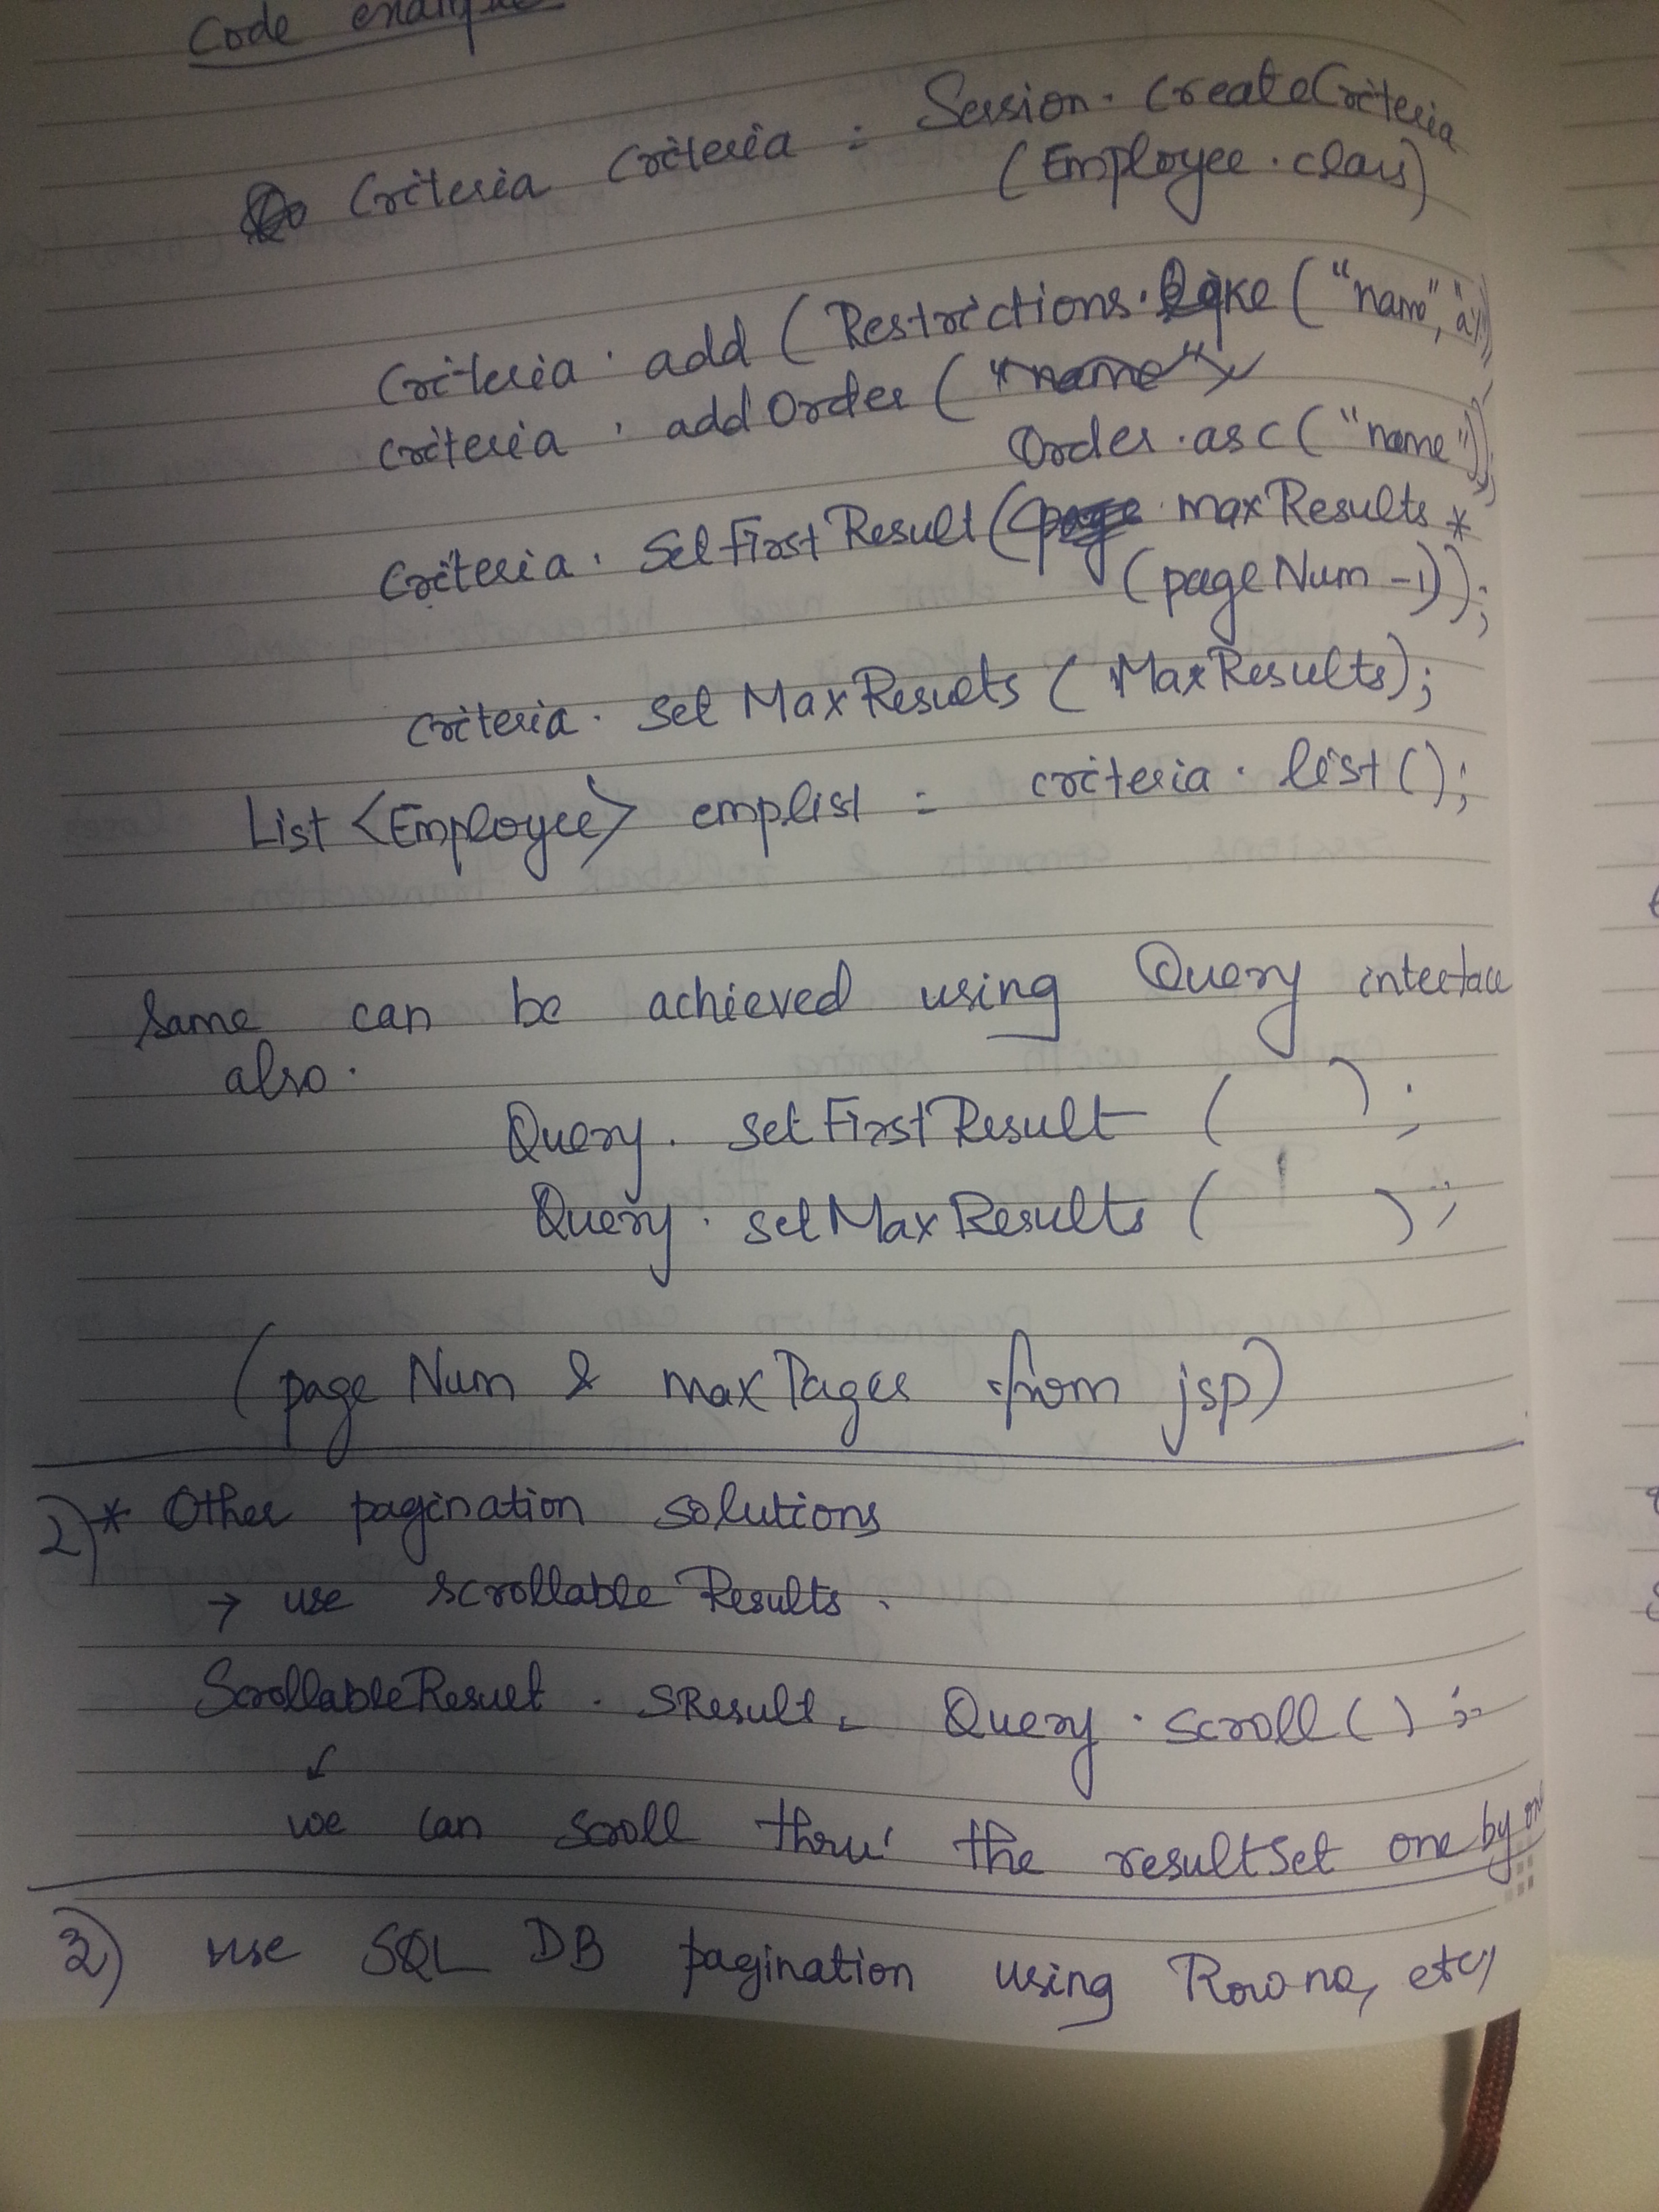 Code example
Criteria Criteria = Session. CreateCriteria
(Employee.class)
Criteria . add ( Restrictions. like ( "name", "a%"))
Criteria . addOrder ( "name")
Order.asc ( "name"));
Criteria . SetFirstResult ( page maxResults *
(pageNum -1));
Criteria . Set MaxResults ( MaxResults);
List <Employee> emplist = criteria . list ();
Same can be achieved using Query interface
also.
Query. setFirstResult ( );
Query. setMaxResults ( );
(page Num & maxPages from jsp)
2) * Other pagination solutions
→ use scrollable Results.
ScrollableResult . SResult = Query . scroll ( ) ;
we can scroll thru' the resultset one by one
3) use SQL DB pagination using Rowno, etc,